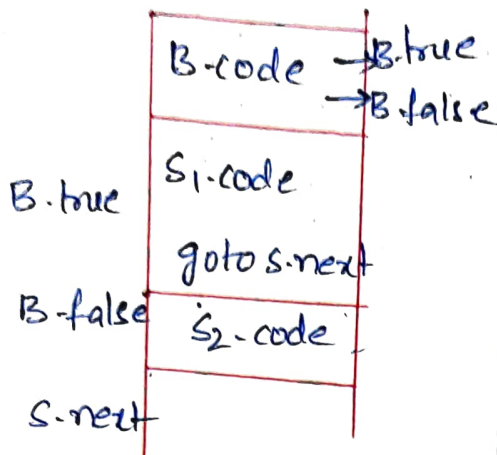 B.code →B.true
→B.false
B.true S₁.code
goto S.next
B.false S₂.code
S.next